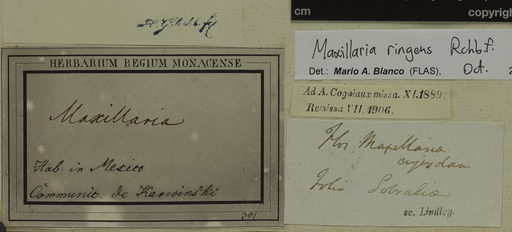 cm
copyrig
HERBARIUM REGIUM MONACENSE
Maxillaria
Hab. in Mexico
Communic. de Karwinski
Maxillaria ringens Rchb.f.
Det.: Mario A. Blanco (FLAS), Oct. 2
Ad A. Cogniaux missa. XI.1889.
Remissa VII. 1906.
Flor. Maxillaria
cujusdam
Folia Sobralia
sc. Lindley.